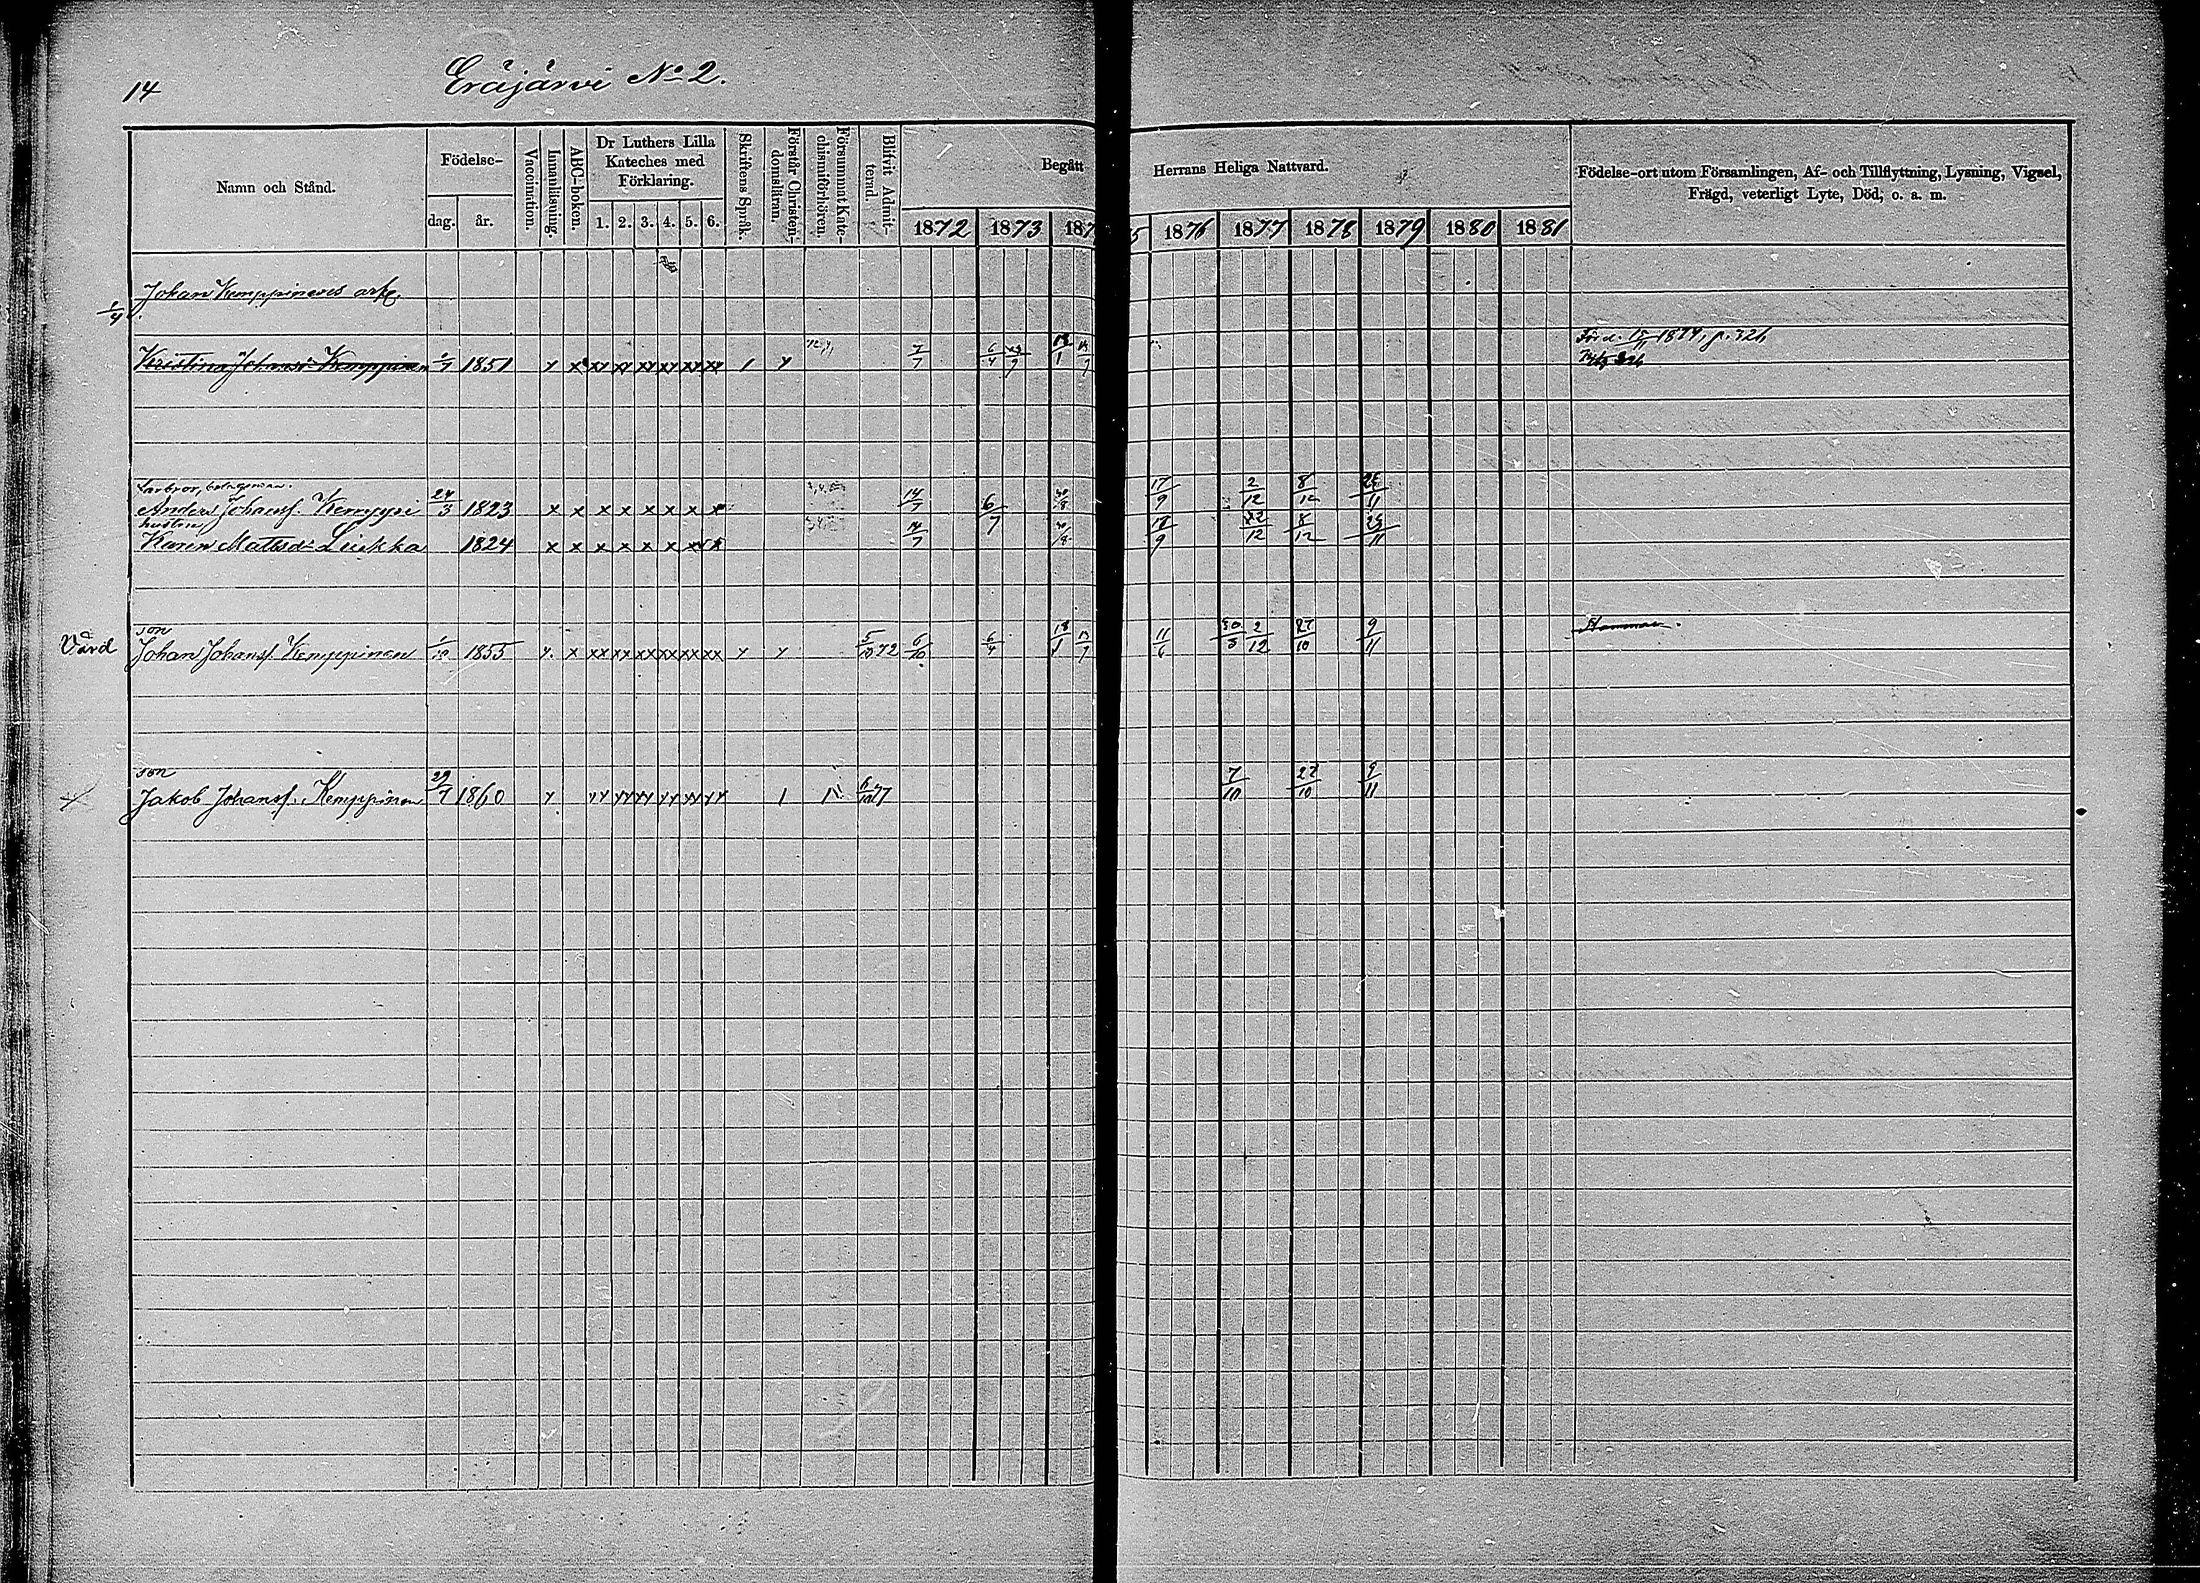 14
Eräjärvi No 2.
Namn och Stånd.
Födelse-
dag. år.
Vaccination.
Innanläsning.
ABC-boken.
Dr Luthers Lilla
Kateches med
Förklaring.
1. 2. 3. 4. 5. 6.
Skriftens Språk.
Förstår Christen-
domsläran.
Försummat Kate-
chismiförhören.
Blifvit Admit-
terad.
Begått Herrans Heliga Nattvard.
1872 1873 187 5 1876 1877 1878 1879 1880 1881
Födelse-ort utom Församlingen, Af- och Tillflyttning, Lysning, Vigsel,
Frägd, veterligt Lyte, Död, o. a. m.
Johan Kemppinens
1/4
Kristina Johansd. Kemppinen 1851 y x xy xy xy xy xy xy 1 y 7/7 6/4
1874, p. 326
farbror,
Anders Johansf. Kemppi 24/3 1823 x x x x x x x x 14/7 6/7 17/9 2/12 8/12 25/11
hustru,
Karin Mattsd. Leukka 1824 x x x x x x x 14/7 8/12 25/11
Vård
son
Johan Johansf. Kemppinen 1855 y x xx xx xx xx xx xx y y 5/10 72 6/10 6/4 11/6 2/12 27/10 9/11
son
Jakob Johansf. Kemppinen 29/7 1860 y yy yy yy yy yy yy 1 1 7/10 27/10 9/11